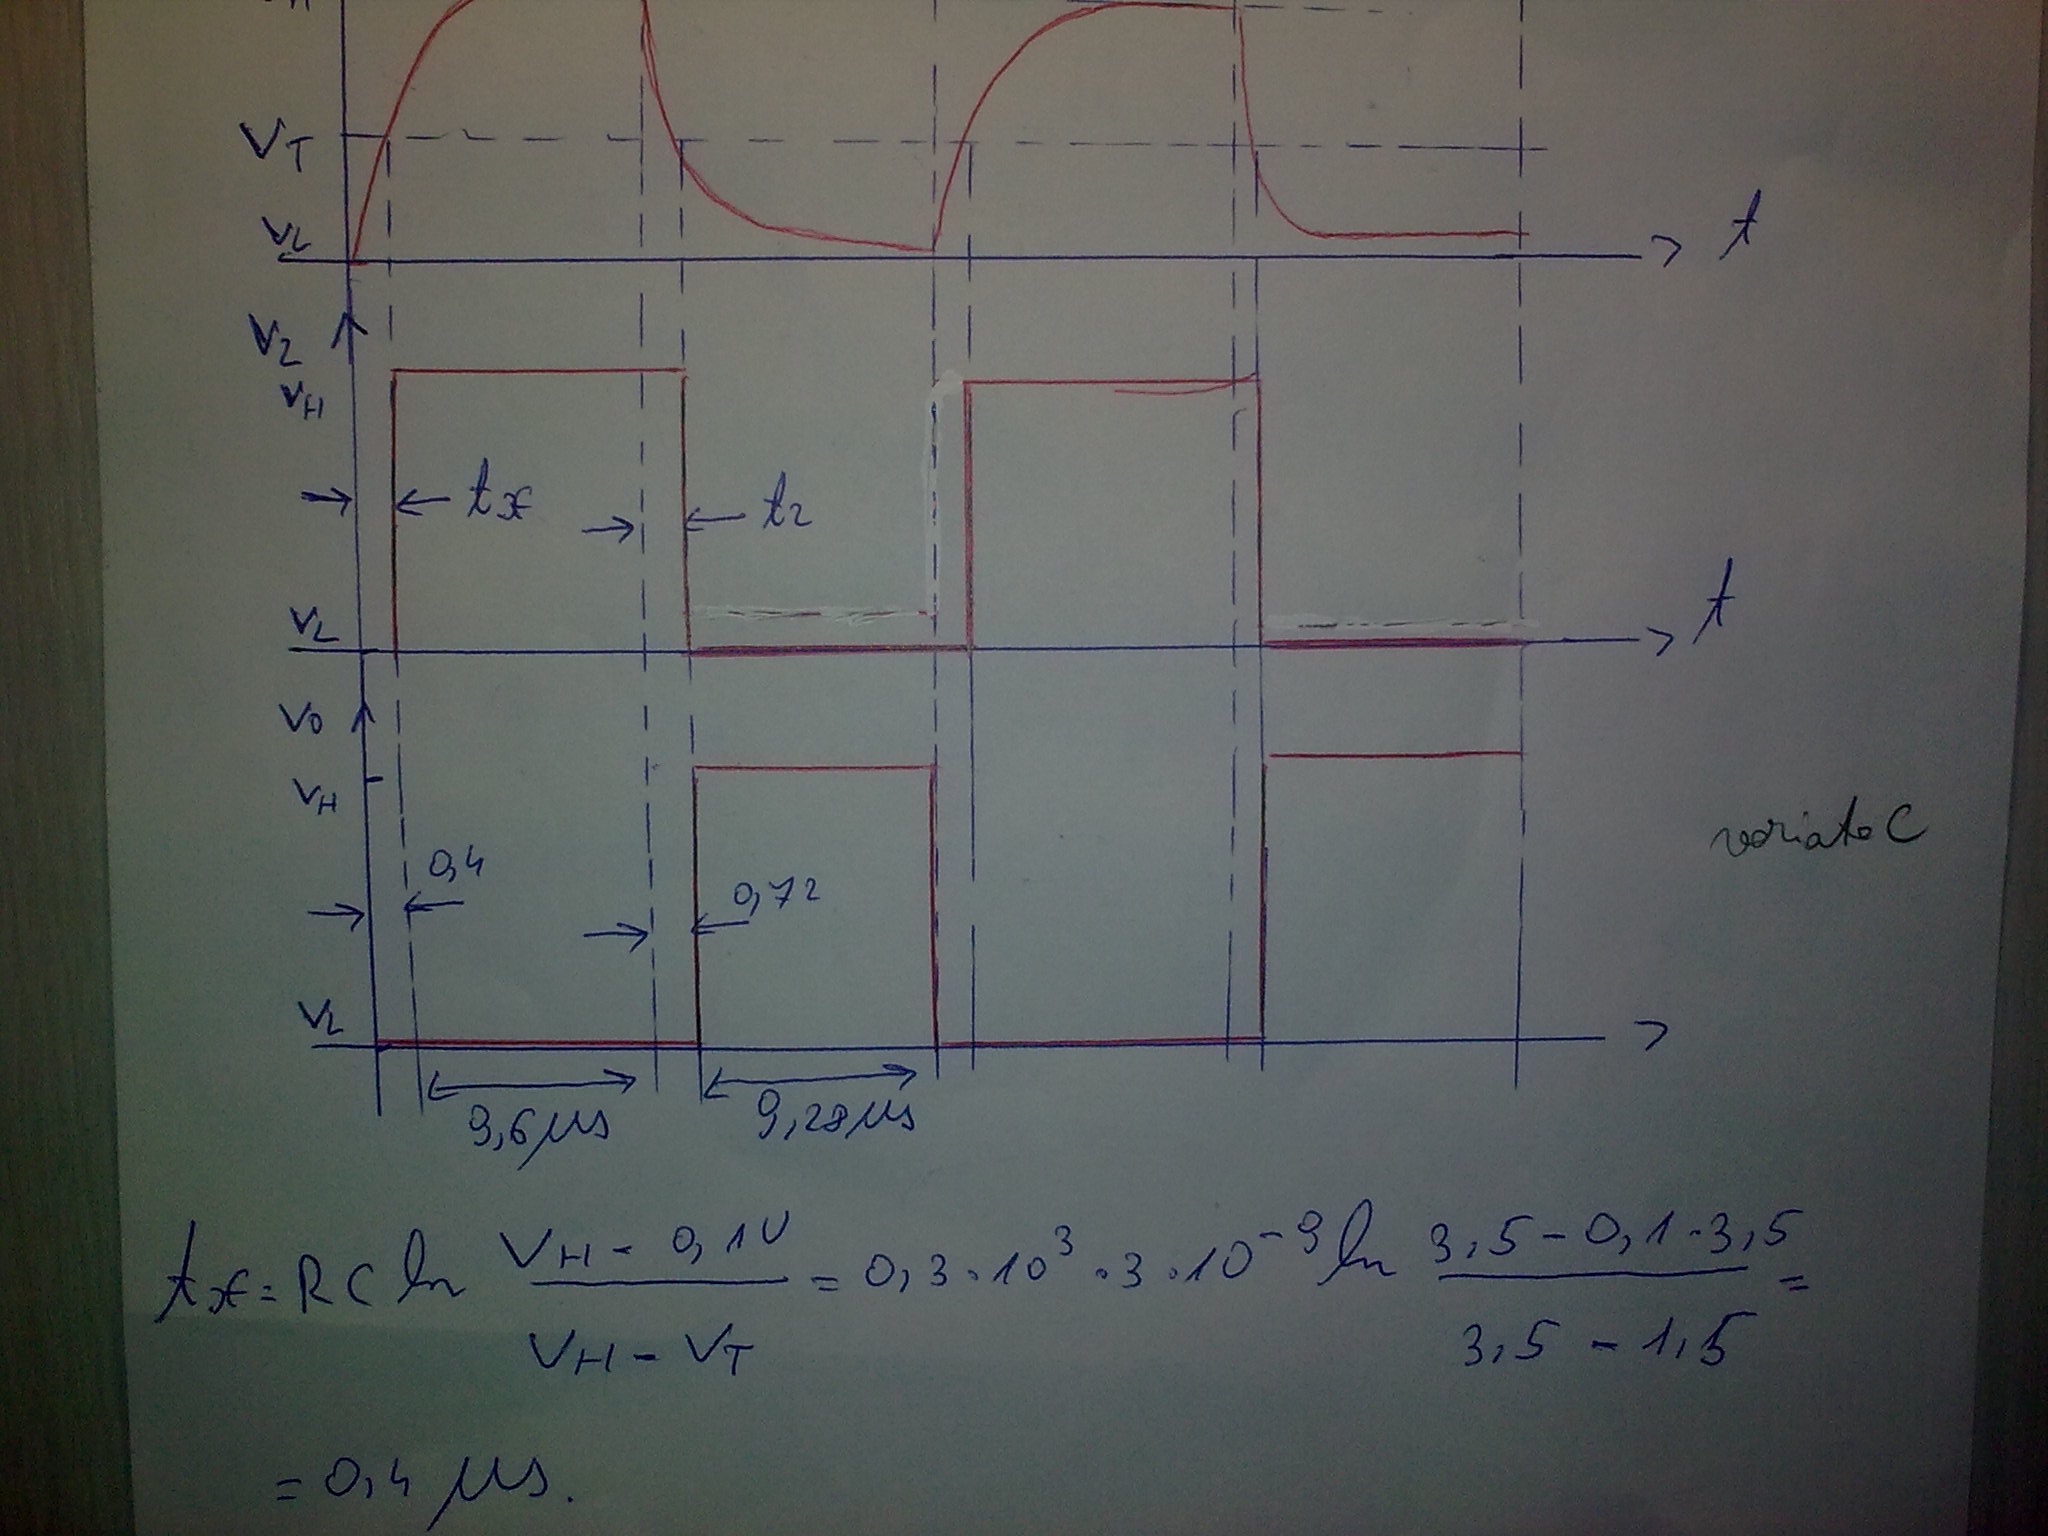 VT
VL
t
V2
VH
tx
t2
VL
t
V0
VH
variato C
0,4
0,72
VL
9,6 μs
9,28 μs
tx = RC ln (VH - 0,1V) / (VH - VT) = 0,3·10³·3·10⁻⁹ ln (3,5 - 0,1·3,5) / (3,5 - 1,5) =
= 0,4 μs.